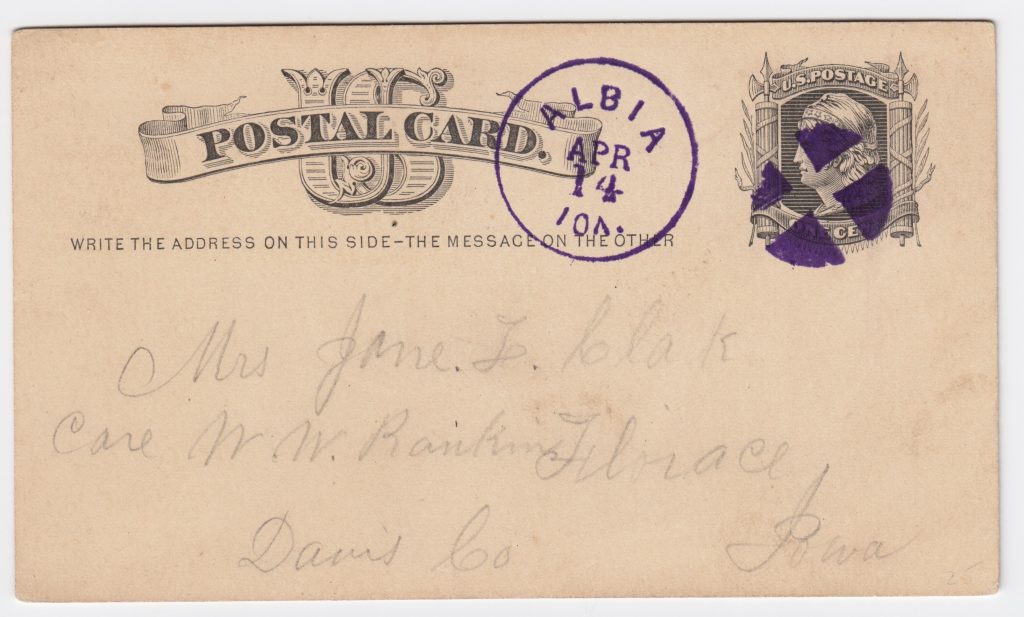 US
POSTAL CARD.
ALBIA
APR
14
IOA.
U.S. POSTAGE
ONE CE
WRITE THE ADDRESS ON THIS SIDE-THE MESSAGE ON THE OTHER
Mrs Jane. F. Clak
Care W. W. Rankin Florace
Davis Co Iowa
25